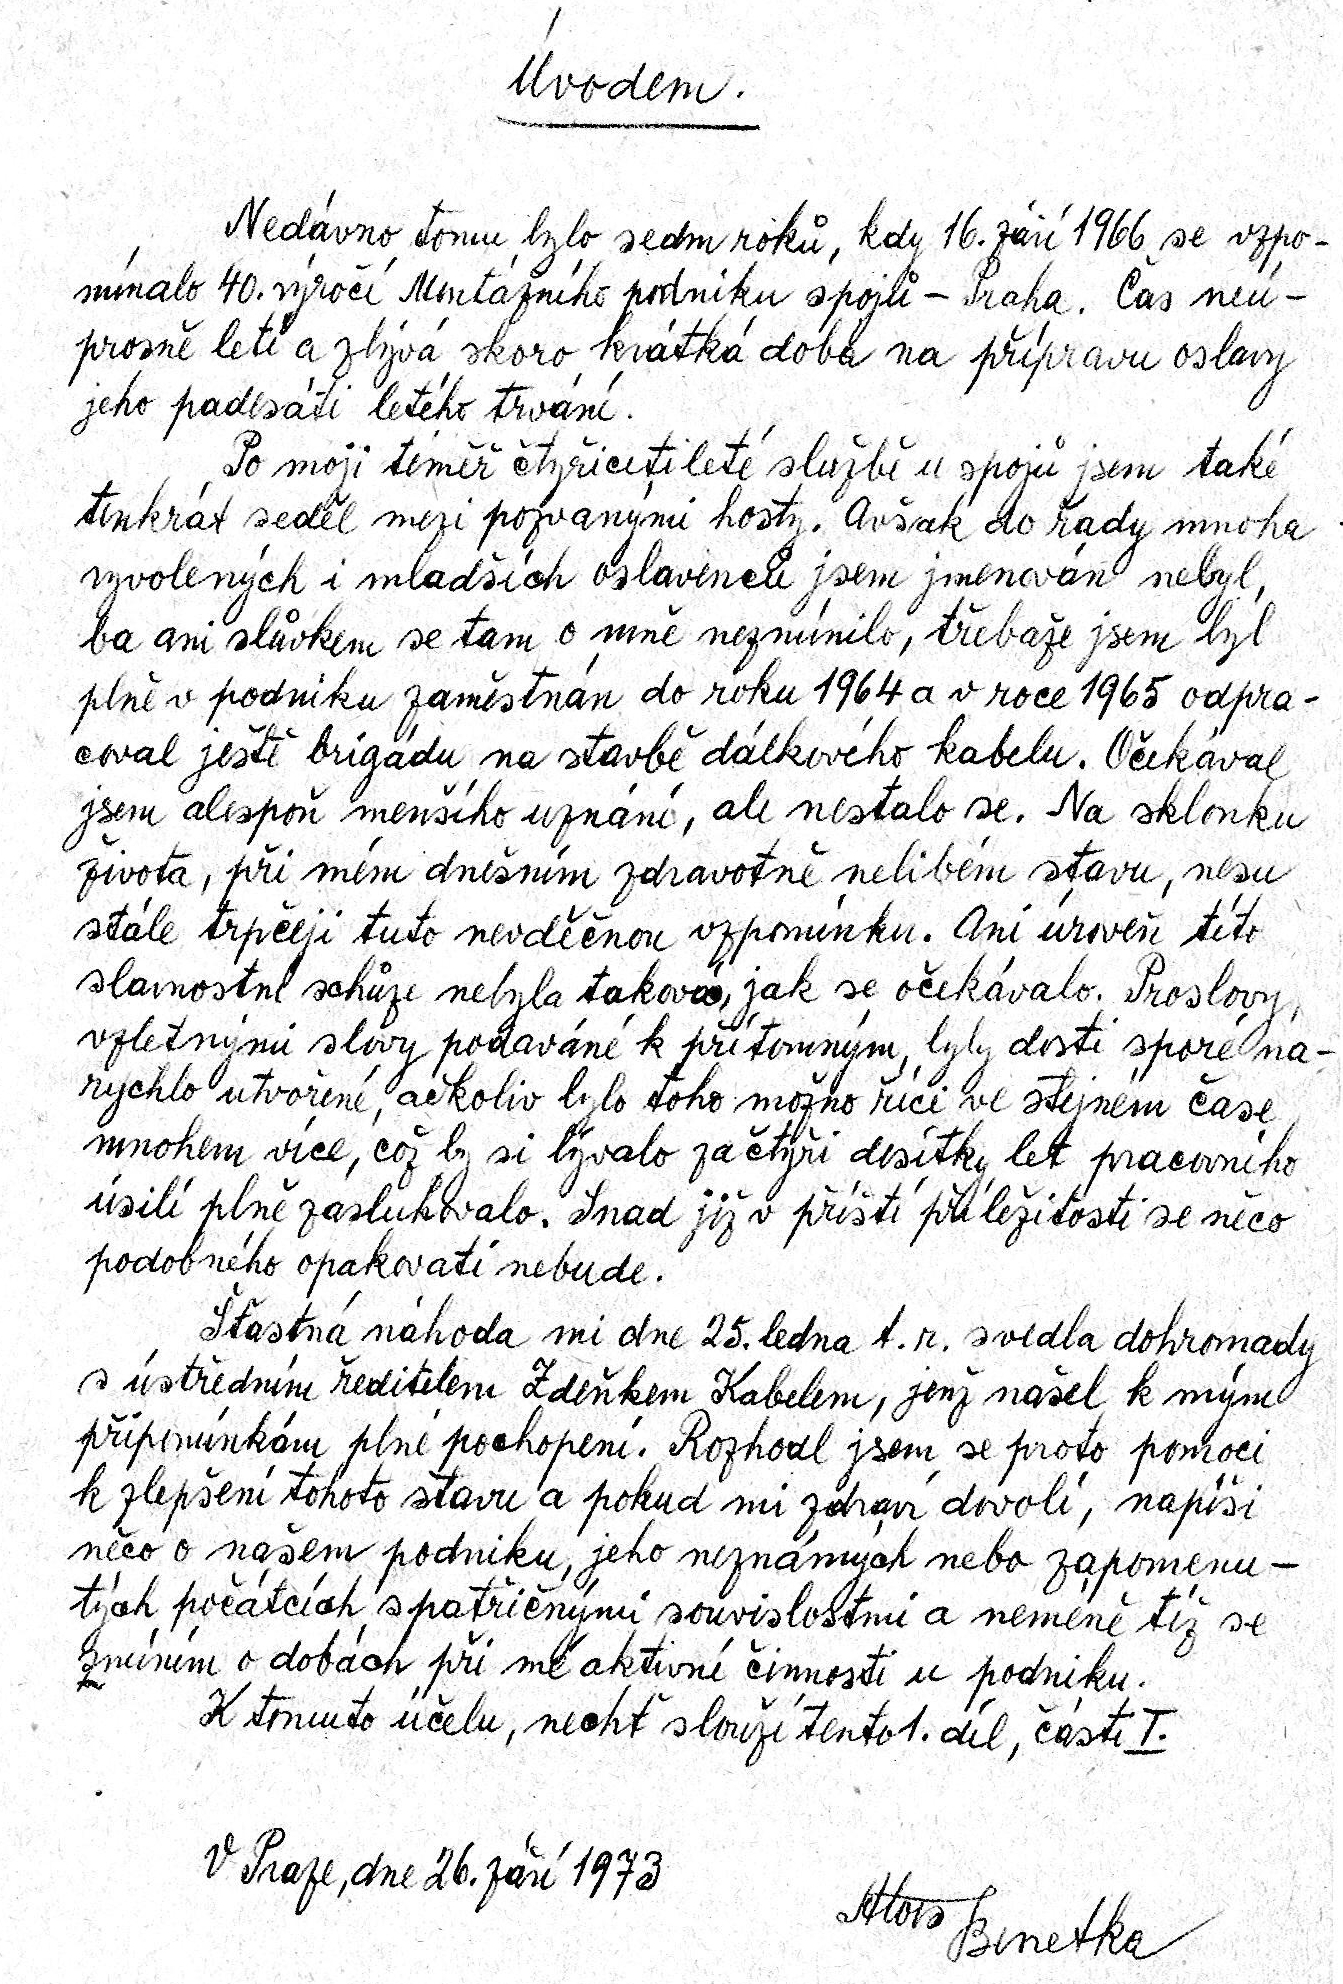 Úvodem.
Nedávno tomu bylo sedm roků, kdy 16. září 1966 se vzpo-
mínalo 40. výročí Montážního podniku spojů - Praha. Čas neú-
prosně letí a zbývá skoro krátká doba na přípravu oslavy
jeho padesáti letého trvání.
Po moji téměř čtyřicetileté službě u spojů jsem také
tenkrát seděl mezi pozvanými hosty. Avšak do řady mnoha
vyvolených i mladších oslavenců jsem jmenován nebyl,
ba ani slůvkem se tam o mně nezmínilo, třebaže jsem byl
plně v podniku zaměstnán do roku 1964 a v roce 1965 odpra-
coval ještě brigádu na stavbě dálkového kabelu. Očekával
jsem alespoň menšího uznání, ale nestalo se. Na sklonku
života, při mém dnešním zdravotně nelibém stavu, nesu
stále trpčeji tuto nevděčnou vzpomínku. Ani úroveň této
slavnostní schůze nebyla taková, jak se očekávalo. Proslovy,
vzletnými slovy podávané k přítomným, byly dosti sporé na-
rychlo utvořené, ačkoliv bylo toho možno říci ve stejném čase
mnohem více, což by si bývalo za čtyři desítky let pracovního
úsilí plně zasluhovalo. Snad již v příští příležitosti se něco
podobného opakovati nebude.
Šťastná náhoda mi dne 25. ledna t. r. svedla dohromady
s ústředním ředitelem Zdeňkem Kabelem, jenž našel k mým
připomínkám plné pochopení. Rozhodl jsem se proto pomoci
k zlepšení tohoto stavu a pokud mi zdraví dovolí, napíši
něco o našem podniku, jeho neznámých nebo zapomenu-
tých počátcích s patřičnými souvislostmi a neméně též se
zmíním o dobách při mé aktivní činnosti u podniku.
K tomuto účelu, nechť slouží tento 1. díl, části I.
V Praze, dne 26. září 1973
Alois Benetka